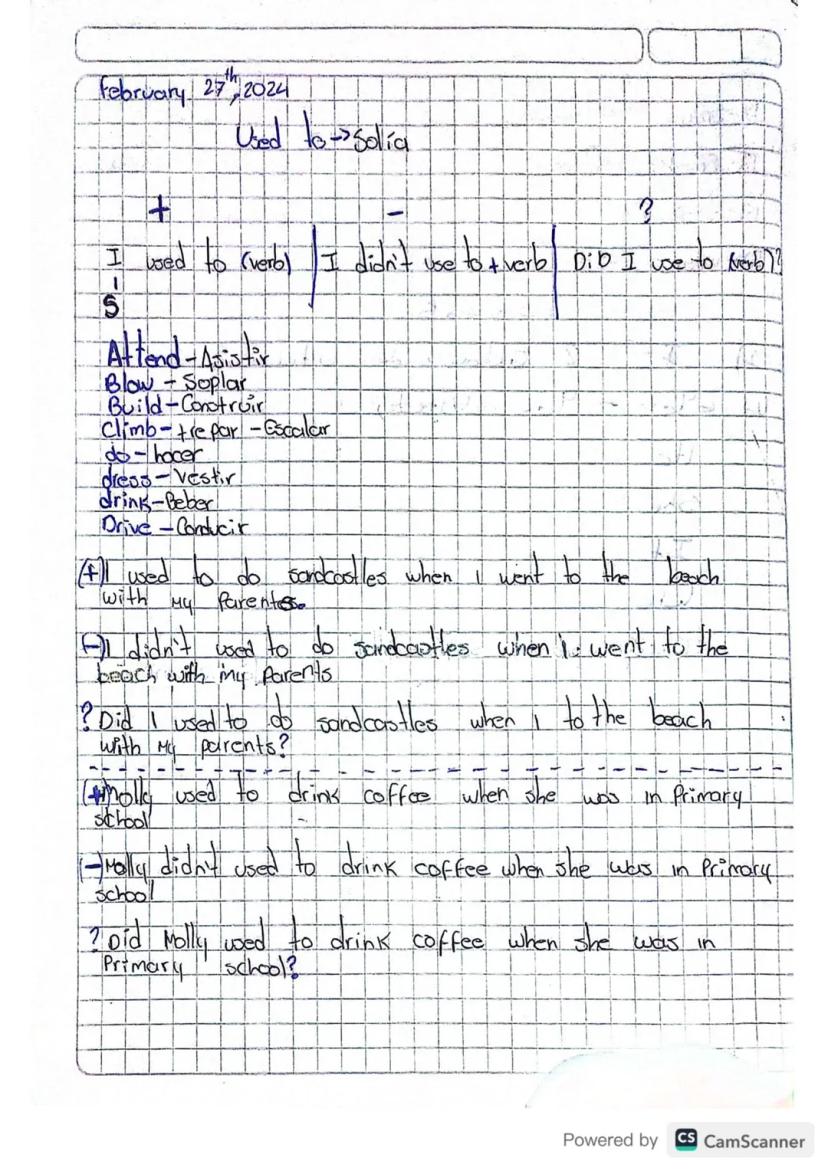 February 27th, 2024
Used to → Solía
+ - ?
I used to (verb) | I didn't use to + verb | Did I use to (verb)?
S
Attend - Asistir
Blow - Soplar
Build - Construir
Climb - trepar - Escalar
do - hacer
dress - Vestir
drink - Beber
Drive - Conducir
(+) I used to do sandcastles when I went to the beach
with my Parents.
(-) I didn't used to do sandcastles when i went to the
beach with my Parents
? Did I used to do sandcastles when I to the beach
with my parents?
(+) Molly used to drink coffee when she was in Primary
school
(-) Molly didn't used to drink coffee when she was in Primary
school
? Did Molly used to drink coffee when she was in
Primary school?
Powered by CS CamScanner